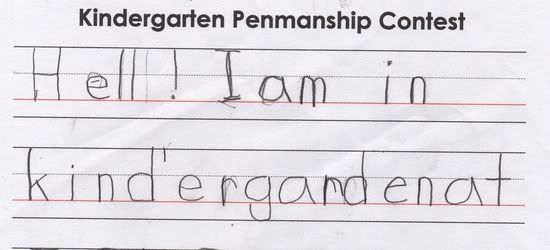 Kindergarten Penmanship Contest
Hell! I am in
kind'ergandenat